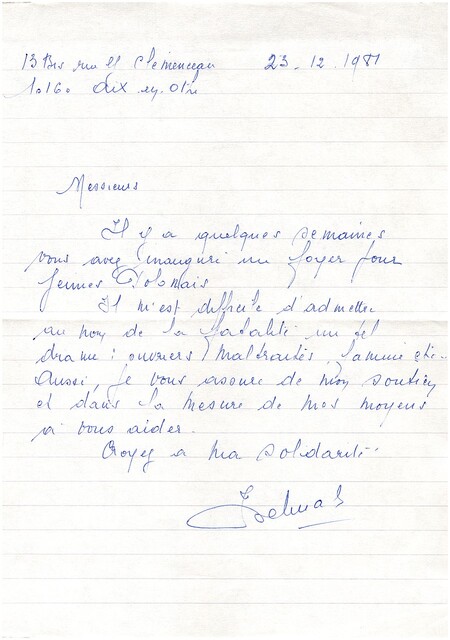 13 Bis rue G Clemenceau 23-12.1981
10160 Aix.en.Othe
Messieurs
Il y a quelques semaines
vous avez inauguré un foyer pour
jeunes Polonais
Il m'est difficile d'admettre
au nom de la fatalité un tel
drame : ouvriers maltraités, famine etc.
Aussi, je vous assure de mon soutien
et dans la mesure de mes moyens
à vous aider.
Croyez a ma solidarité.